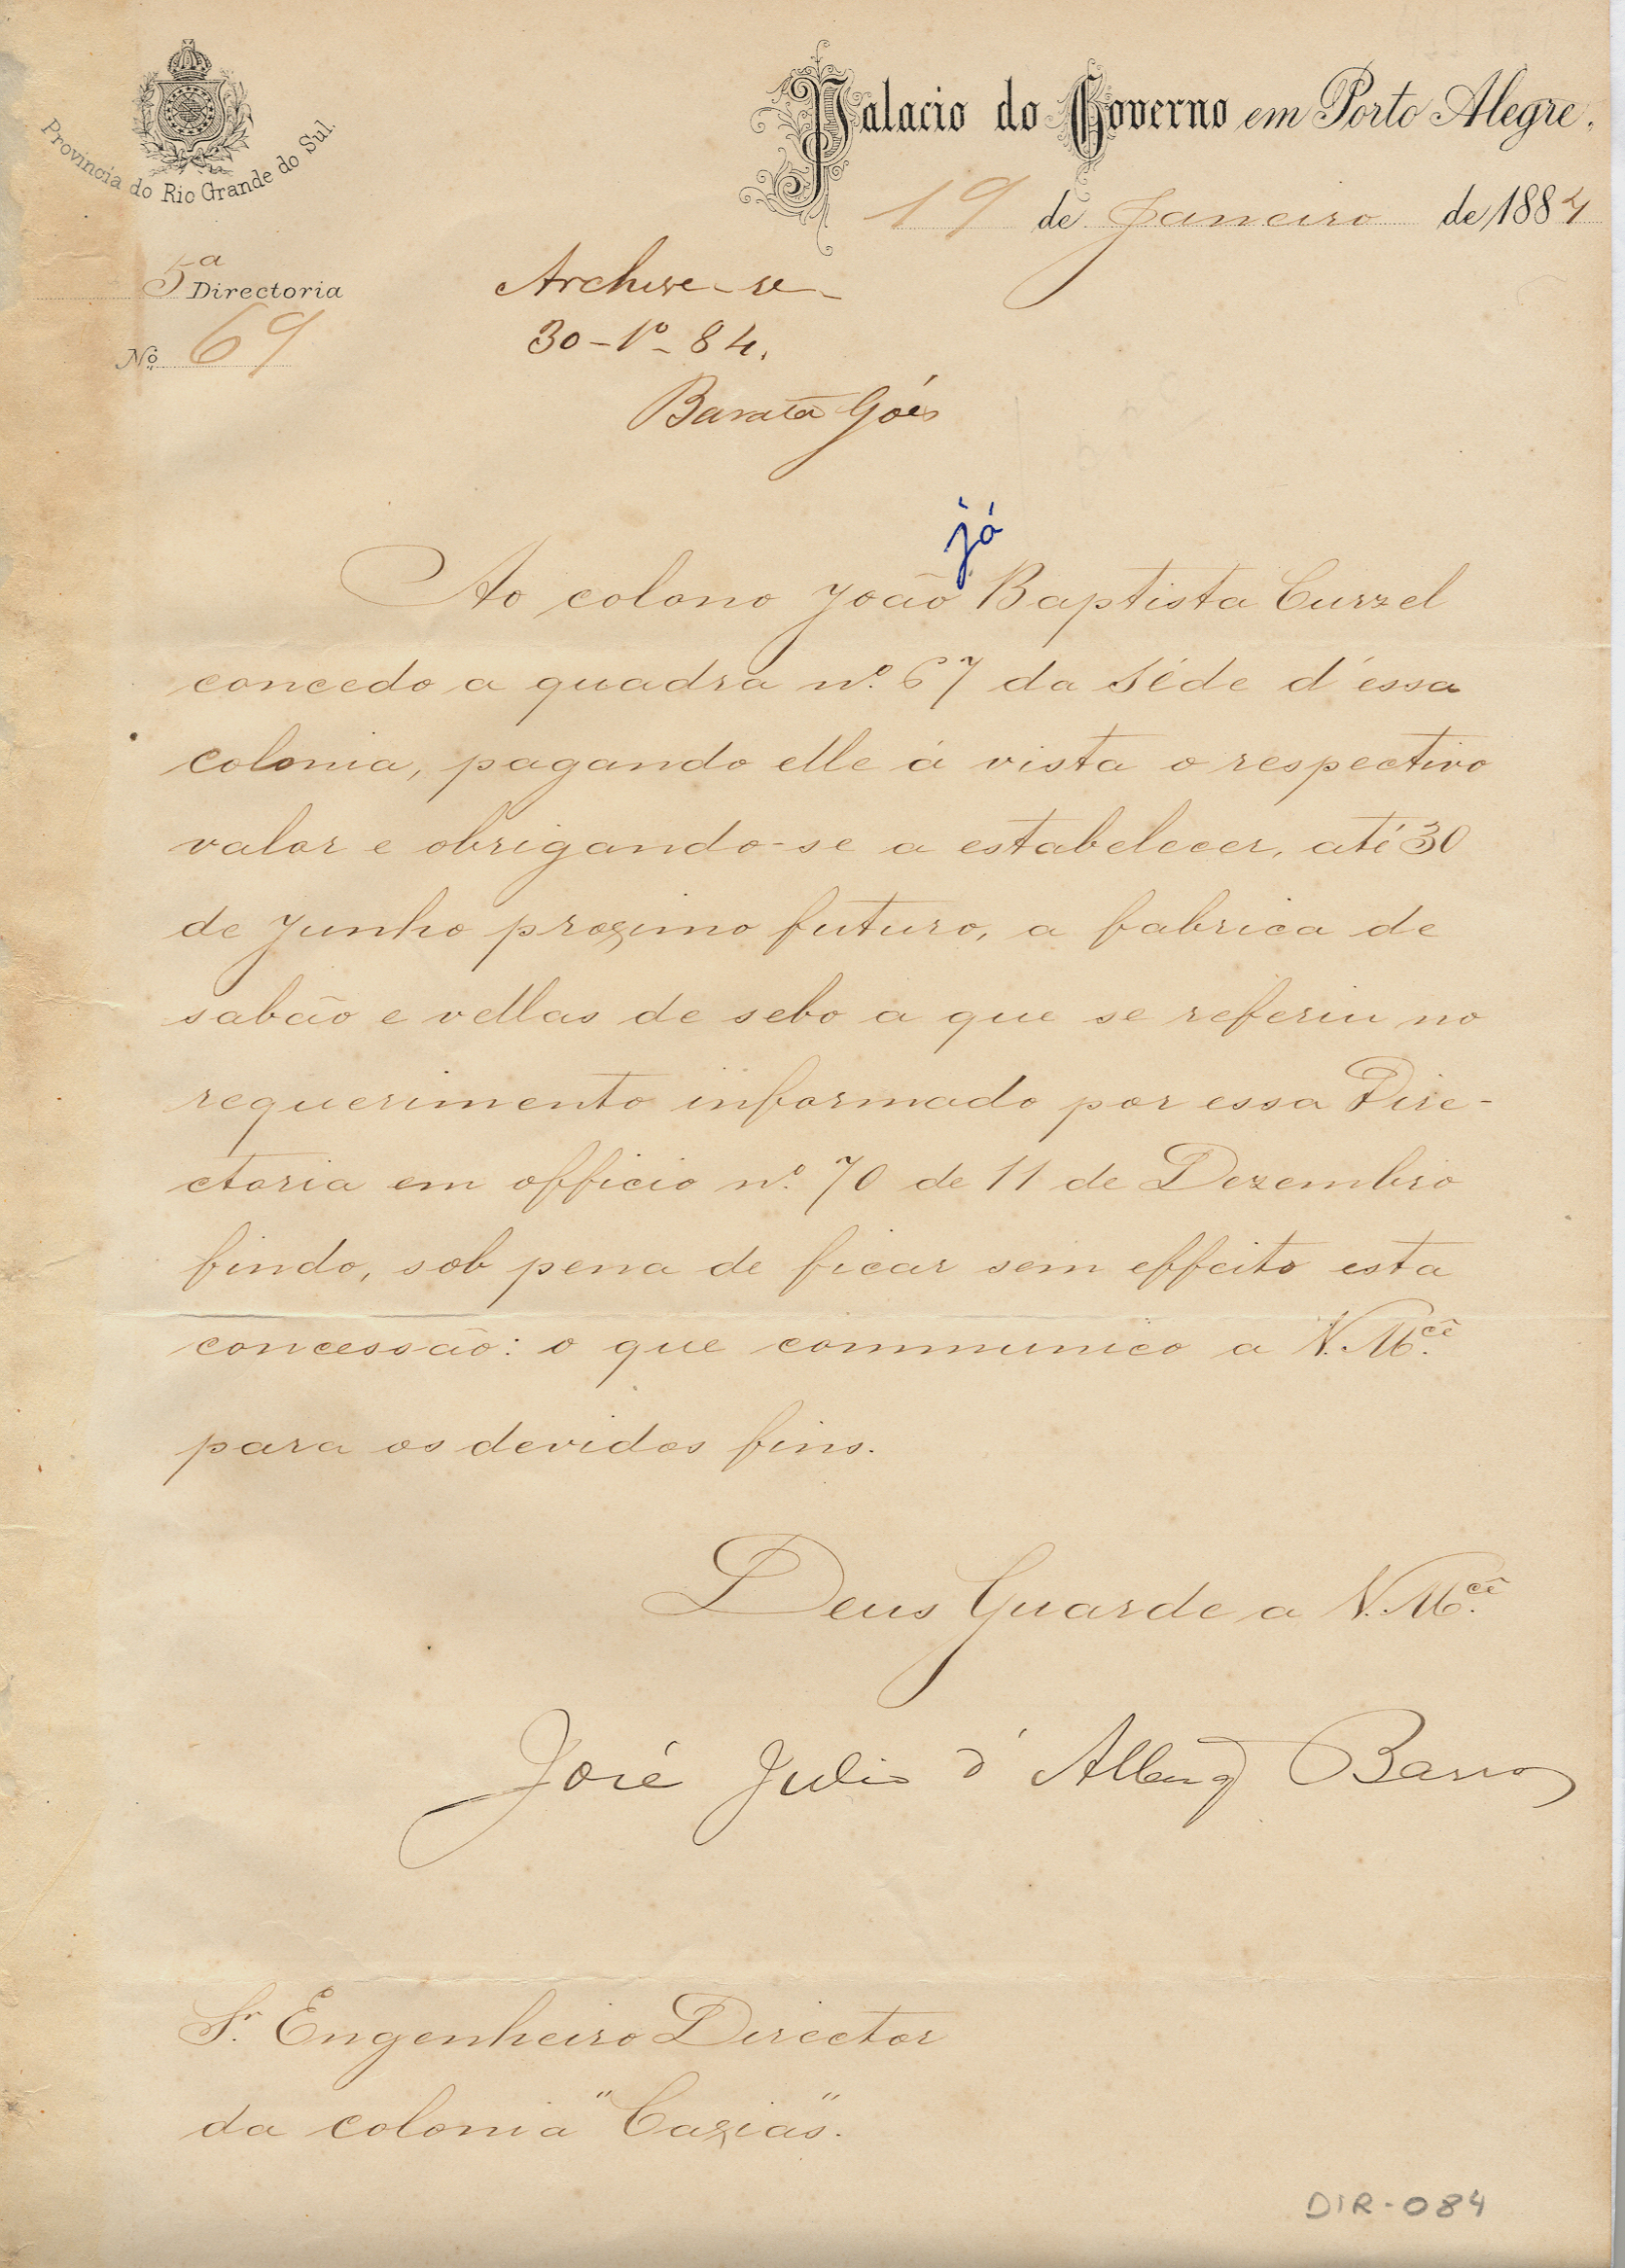 Provincia do Rio Grande do Sul.
Palacio do Governo em Porto Alegre.
19 de Janeiro de 1884
5ª Directoria
Nº 69
Archive-se
30-1º-84.
Barata Góes
já
Ao colono João Baptista Curzel
concedo a quadra nº. 67 da Séde d'essa
colonia, pagando elle á vista o respectivo
valor e obrigando-se a estabelecer, até 30
de Junho proximo futuro, a fabrica de
sabão e vellas de sebo a que se referiu no
requerimento informado por essa Dire-
ctoria em officio nº. 70 de 11 de Dezembro
findo, sob pena de ficar sem effeito esta
concessão: o que communico a V. M.cê
para os devidos fins.
Deus Guarde a V. M.cê
José Julio d' Albuq Barros
Sr. Engenheiro Director
da colonia "Caxias".
DIR-084